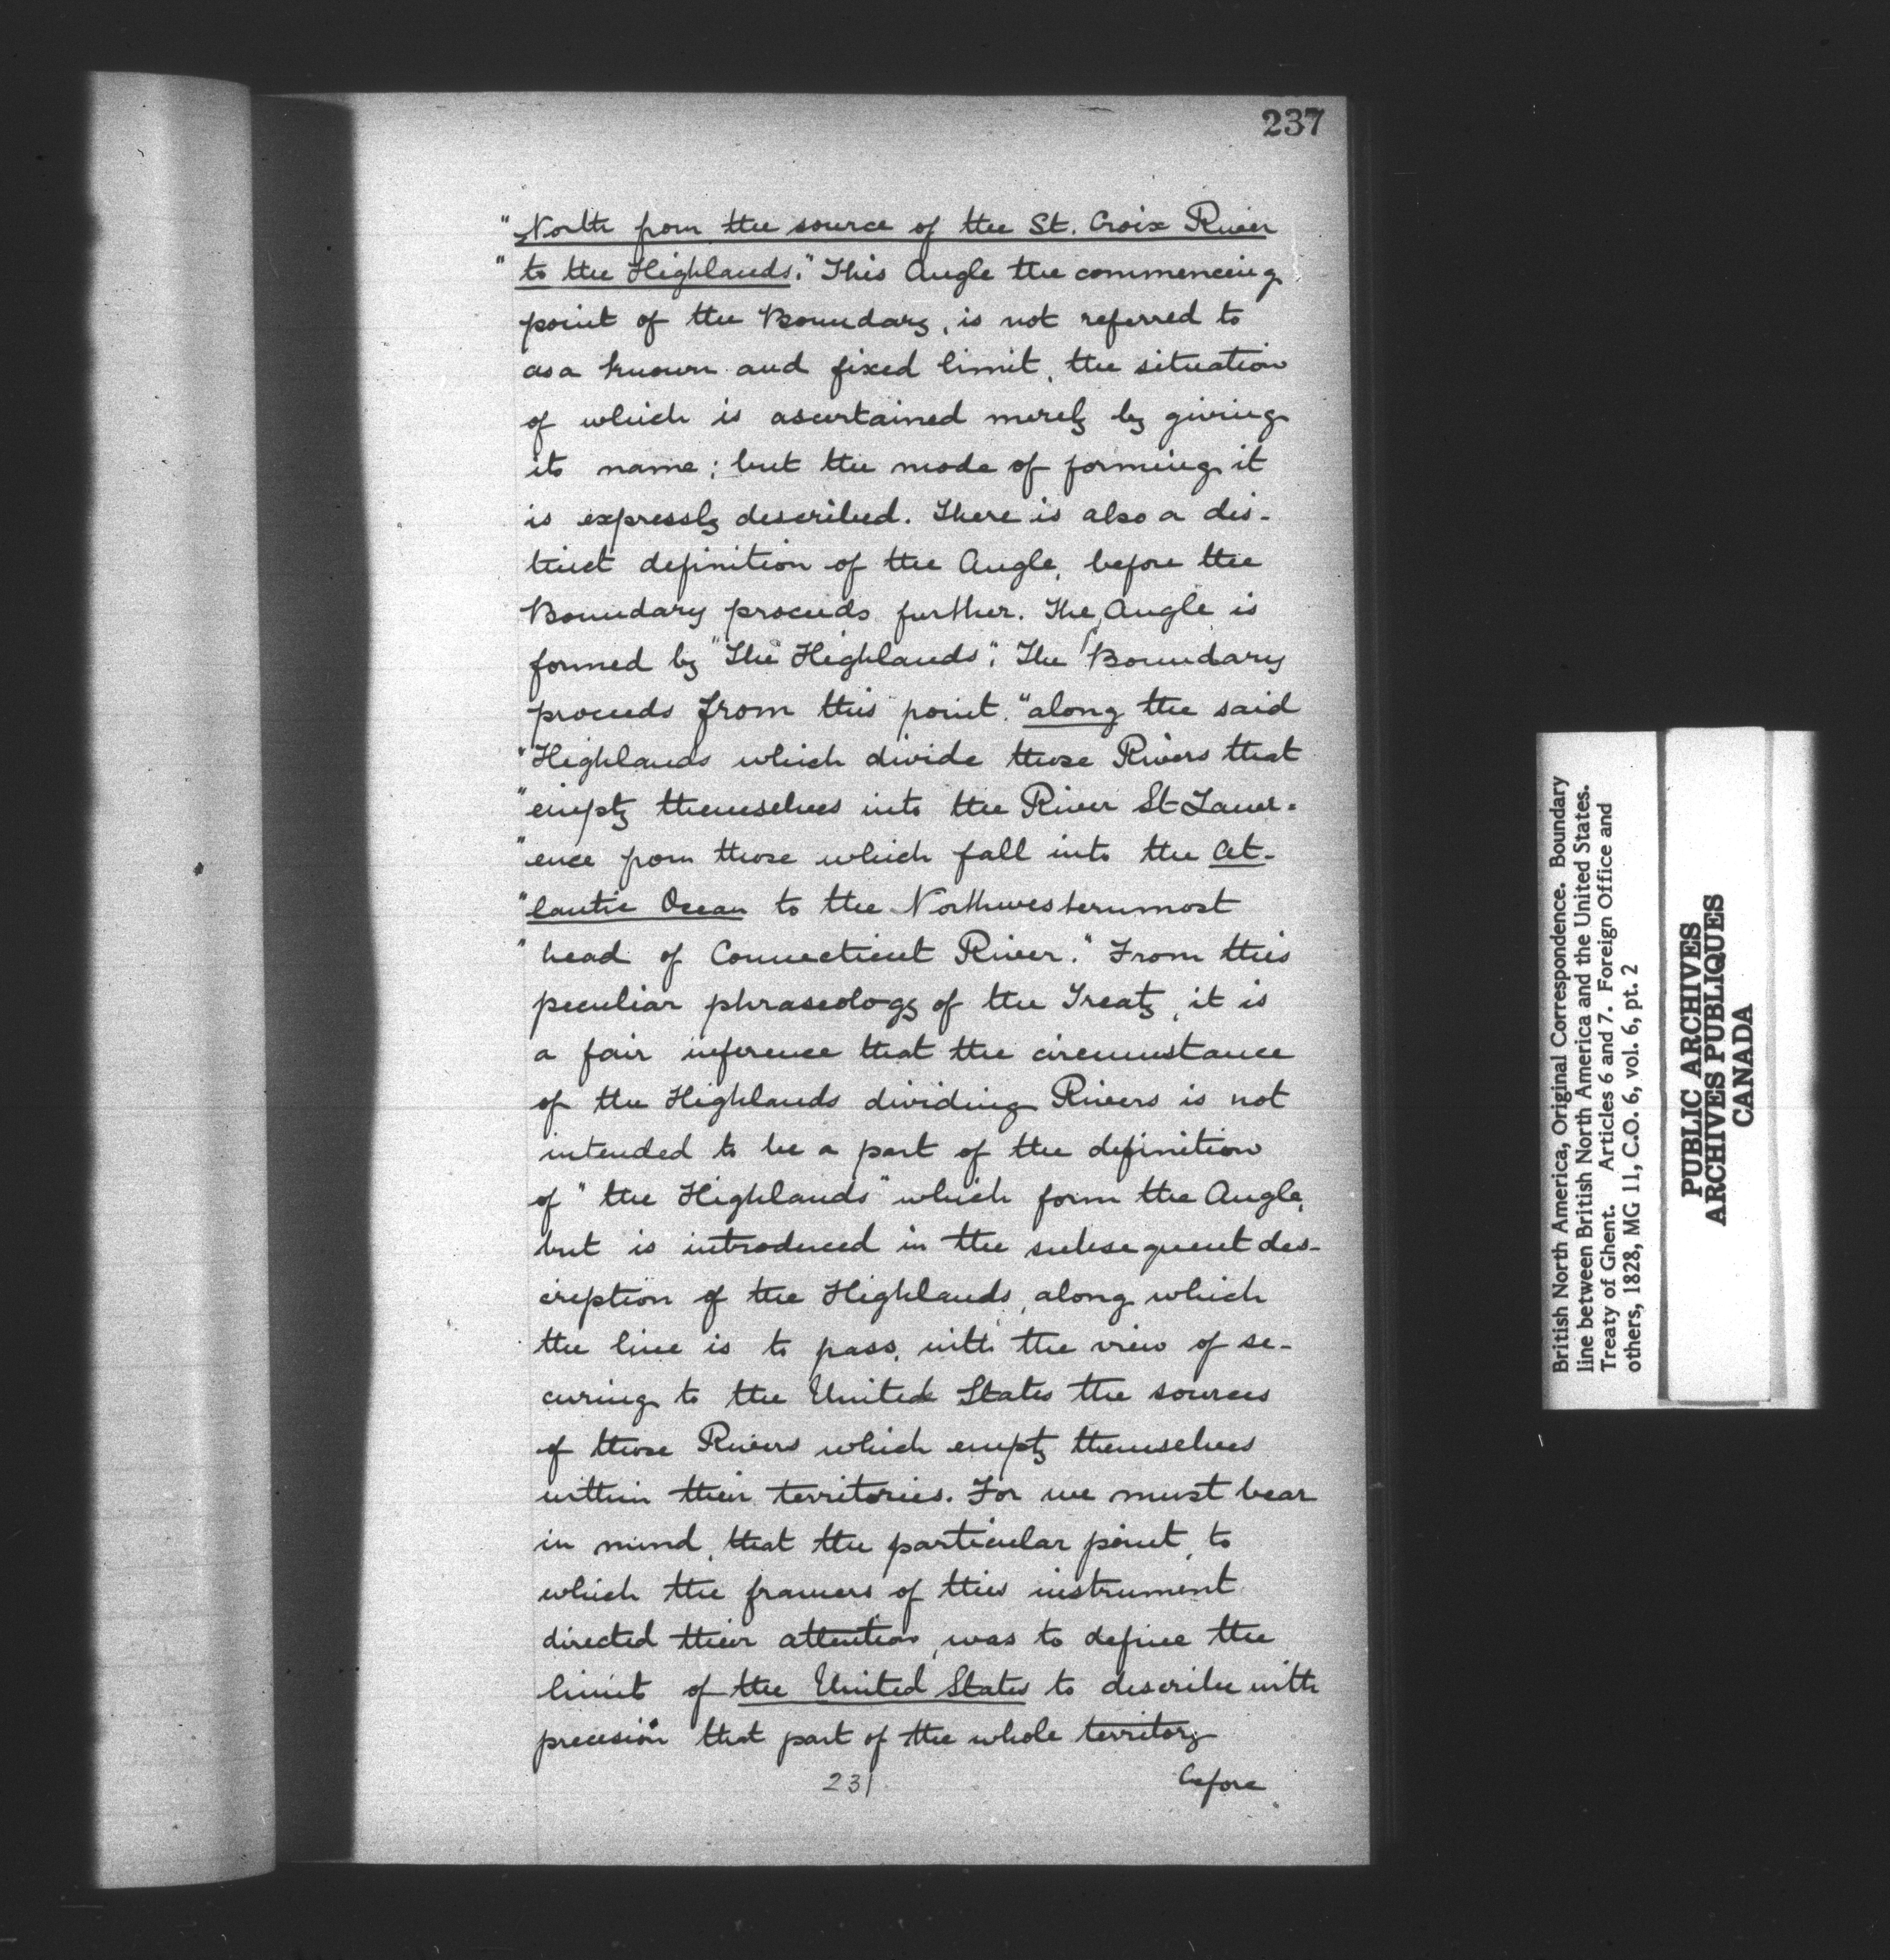 237
"North from the source of the St. Croix River
"to the Highlands." This Angle the commencing
point of the Boundary, is not referred to
as a known and fixed limit, the situation
of which is ascertained merely by giving
its name; but the mode of forming it
is expressly described. There is also a dis-
tinct definition of the Angle, before the
Boundary proceeds further. The Angle is
formed by "The Highlands". The Boundary
proceeds from this point, "along the said
"Highlands which divide those Rivers that
"empty themselves into the River St Lawr-
"ence from those which fall into the At-
"lantic Ocean to the Northwesternmost
"head of Connecticut River." From this
peculiar phraseology of the Treaty, it is
a fair inference that the circumstance
of the Highlands dividing Rivers is not
intended to be a part of the definition
of "the Highlands" which form the Angle,
but is introduced in the subsequent des-
cription of the Highlands, along which
the line is to pass, with the view of se-
curing to the United States the sources
of those Rivers which empty themselves
within their territories. For we must bear
in mind, that the particular point, to
which the framers of this instrument
directed their attention, was to define the
limit of the United States to describe with
precision that part of the whole territory
231 before
British North America, Original Correspondence. Boundary
line between British North America and the United States.
Treaty of Ghent. Articles 6 and 7. Foreign Office and
others, 1828, MG 11, C.O. 6, vol. 6, pt. 2
PUBLIC ARCHIVES
ARCHIVES PUBLIQUES
CANADA